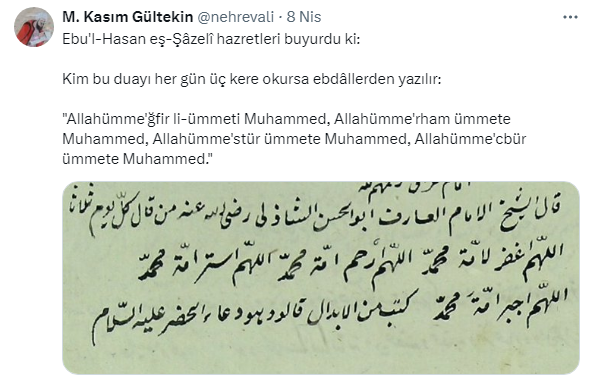 M. Kasım Gültekin @nehrevali · 8 Nis
Ebu'l-Hasan eş-Şâzelî hazretleri buyurdu ki:
Kim bu duayı her gün üç kere okursa ebdâllerden yazılır:
"Allahümme'ğfir li-ümmeti Muhammed, Allahümme'rham ümmete
Muhammed, Allahümme'stür ümmete Muhammed, Allahümme'cbür
ümmete Muhammed."
قال الشيخ الامام العارف ابو الحسن الشاذلى رضى الله عنه من قال كل يوم ثلاثا
اللهم اغفر لامة محمد اللهم ارحم امة محمد اللهم استر امة محمد
اللهم اجبر امة محمد كتب من الابدال قالو دهو دعاء الخضر عليه السلام